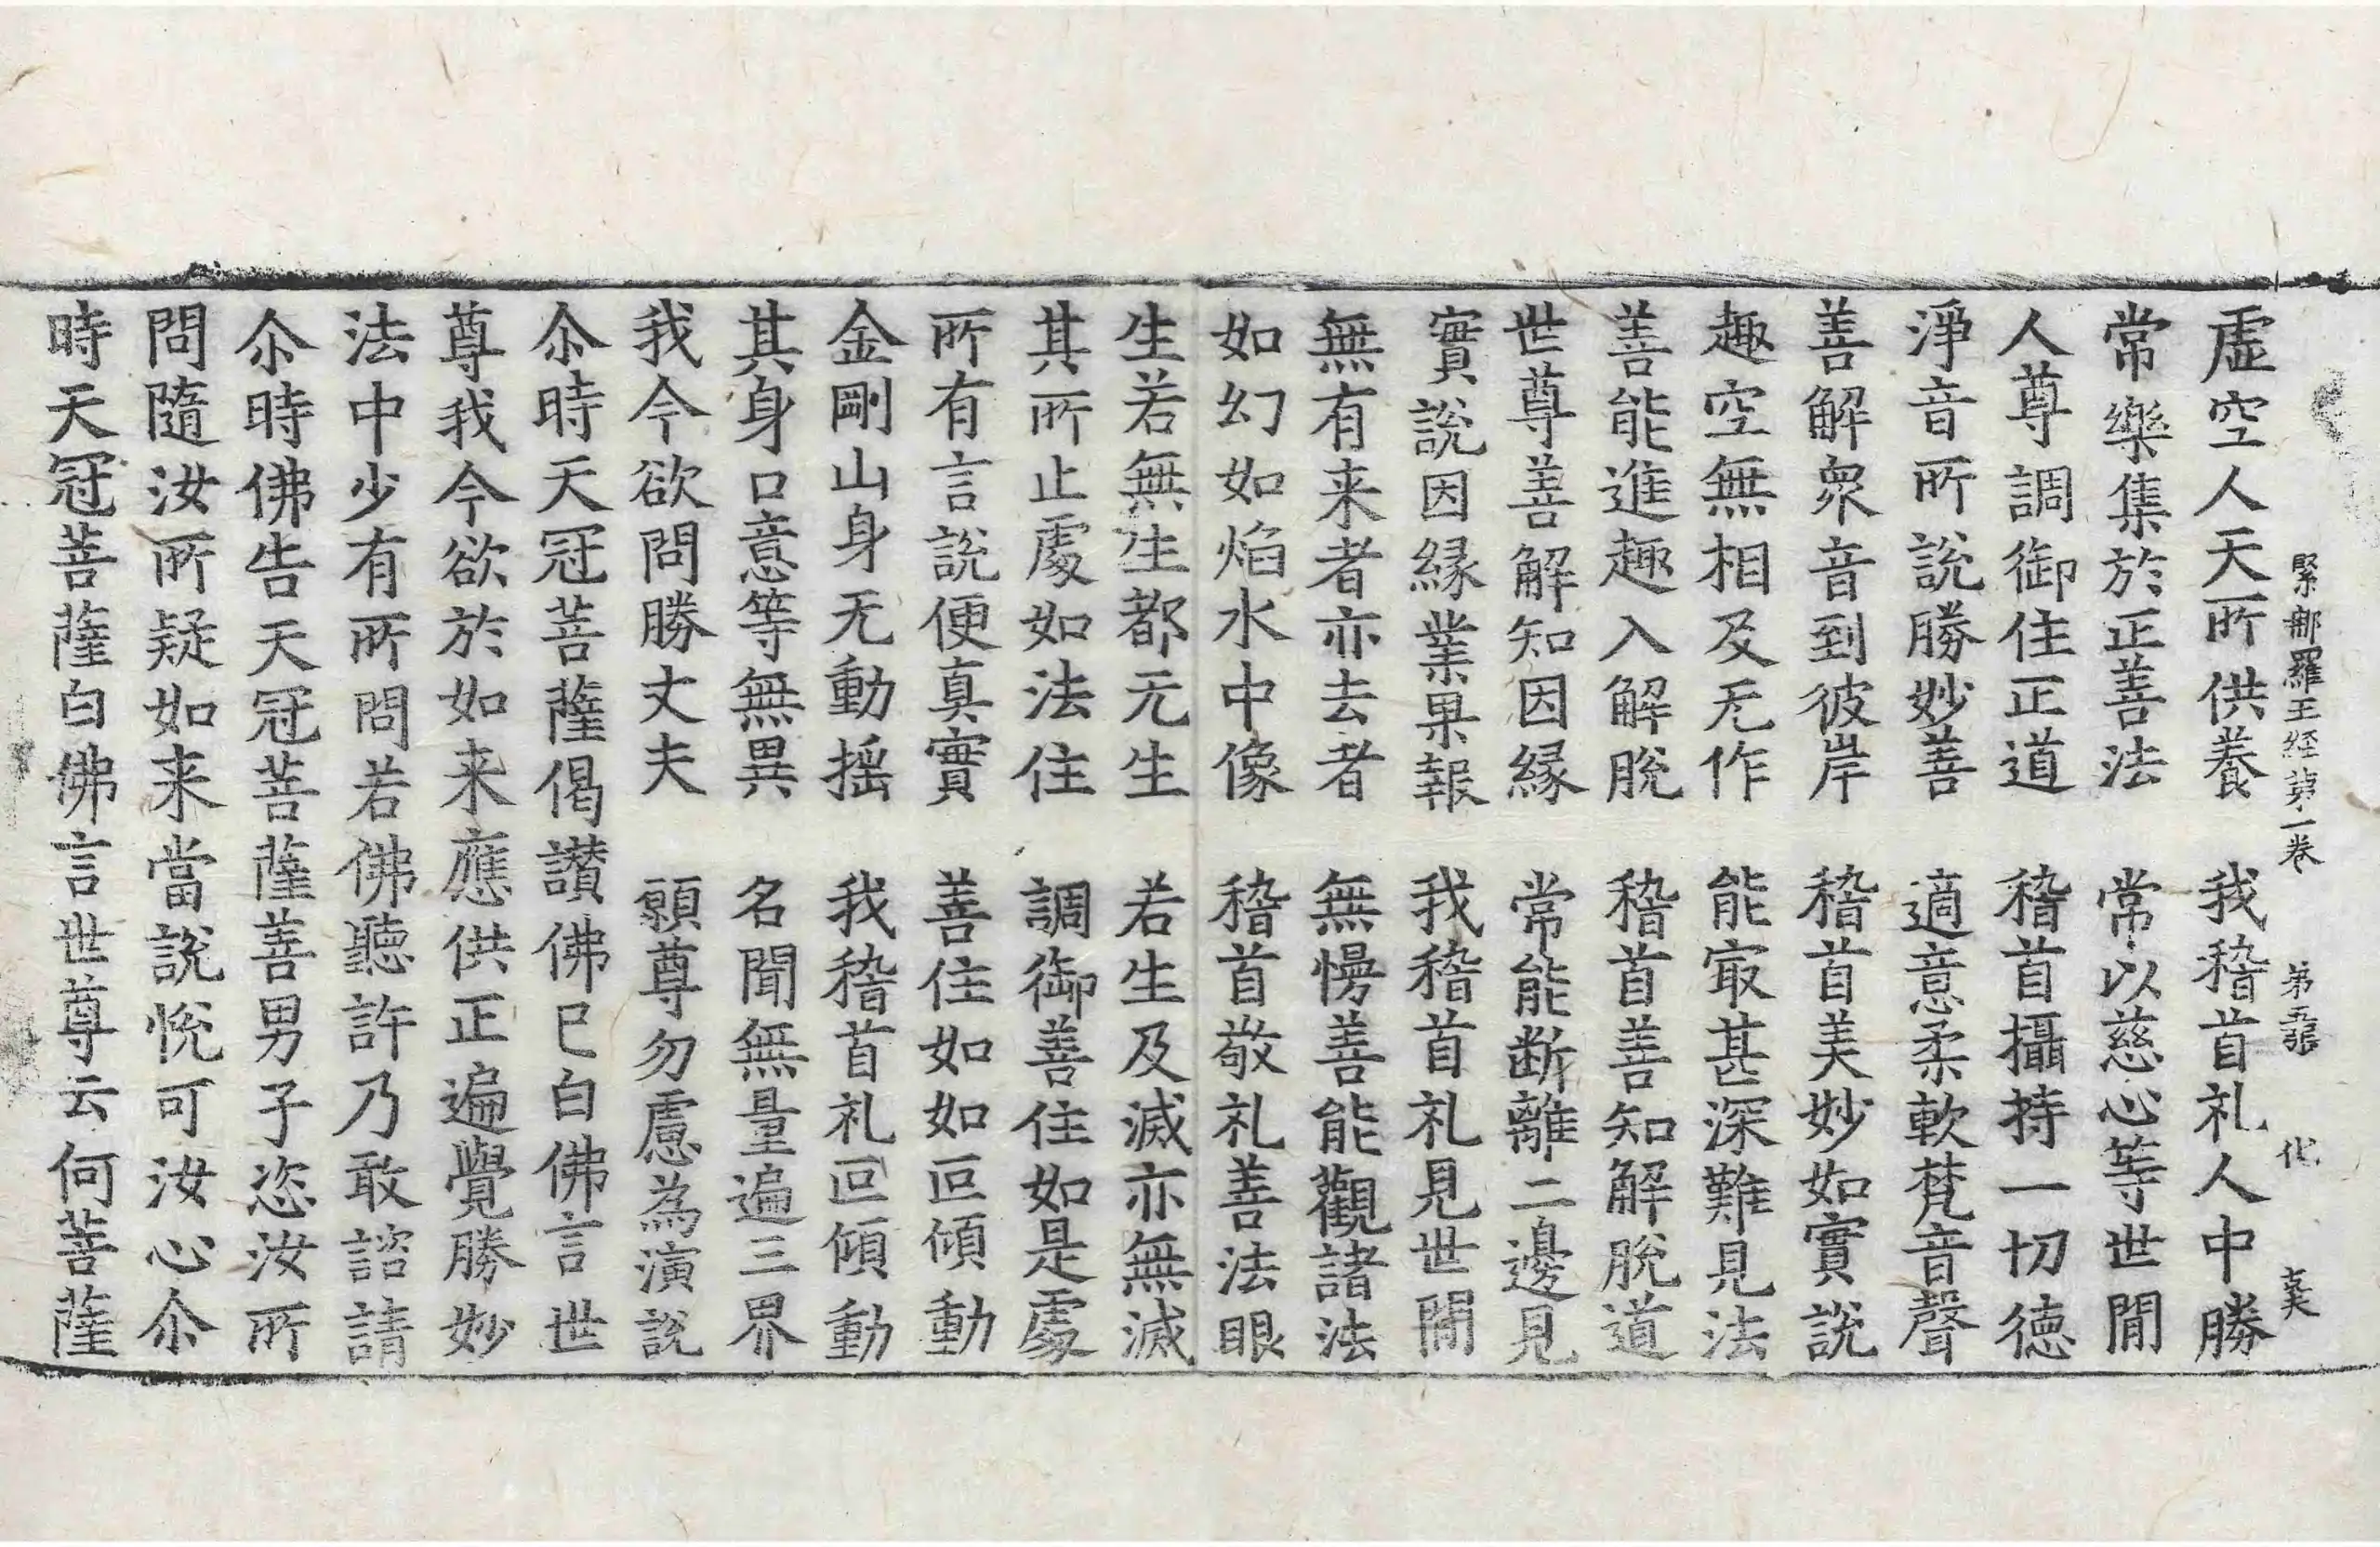 緊那羅王経苐一卷 第五張 化
虛空人天所供養 我稽首礼人中勝
常樂集於正善法 常以慈心等世閒
人尊調御住正道 稽首攝持一切德
淨音所說勝妙善 適意柔軟梵音聲
善解衆音到彼岸 稽首美妙如實說
趣空無相及无作 能㝡甚深難見法
善能進趣入解脫 稽首善知解脫道
世尊善解知因緣 常能断離二邊見
實說因緣業果報 我稽首礼見世閒
無有来者亦去者 無慢善能觀諸法
如幻如焰水中像 稽首敬礼善法眼
生若無生都无生 若生及滅亦無滅
其所止處如法住 調御善住如是處
所有言說便真實 善住如如叵傾動
金剛山身无動揺 我稽首礼叵傾動
其身口意等無異 名聞無量遍三界
我今欲問勝丈夫 願尊勿慮為演說
尒時天冠菩薩偈讃佛已白佛言世
尊我今欲於如来應供正遍覺勝妙
法中少有所問若佛聽許乃敢諮請
尒時佛告天冠菩薩善男子恣汝所
問隨汝所疑如来當說悅可汝心尒
時天冠菩薩白佛言世尊云何菩薩